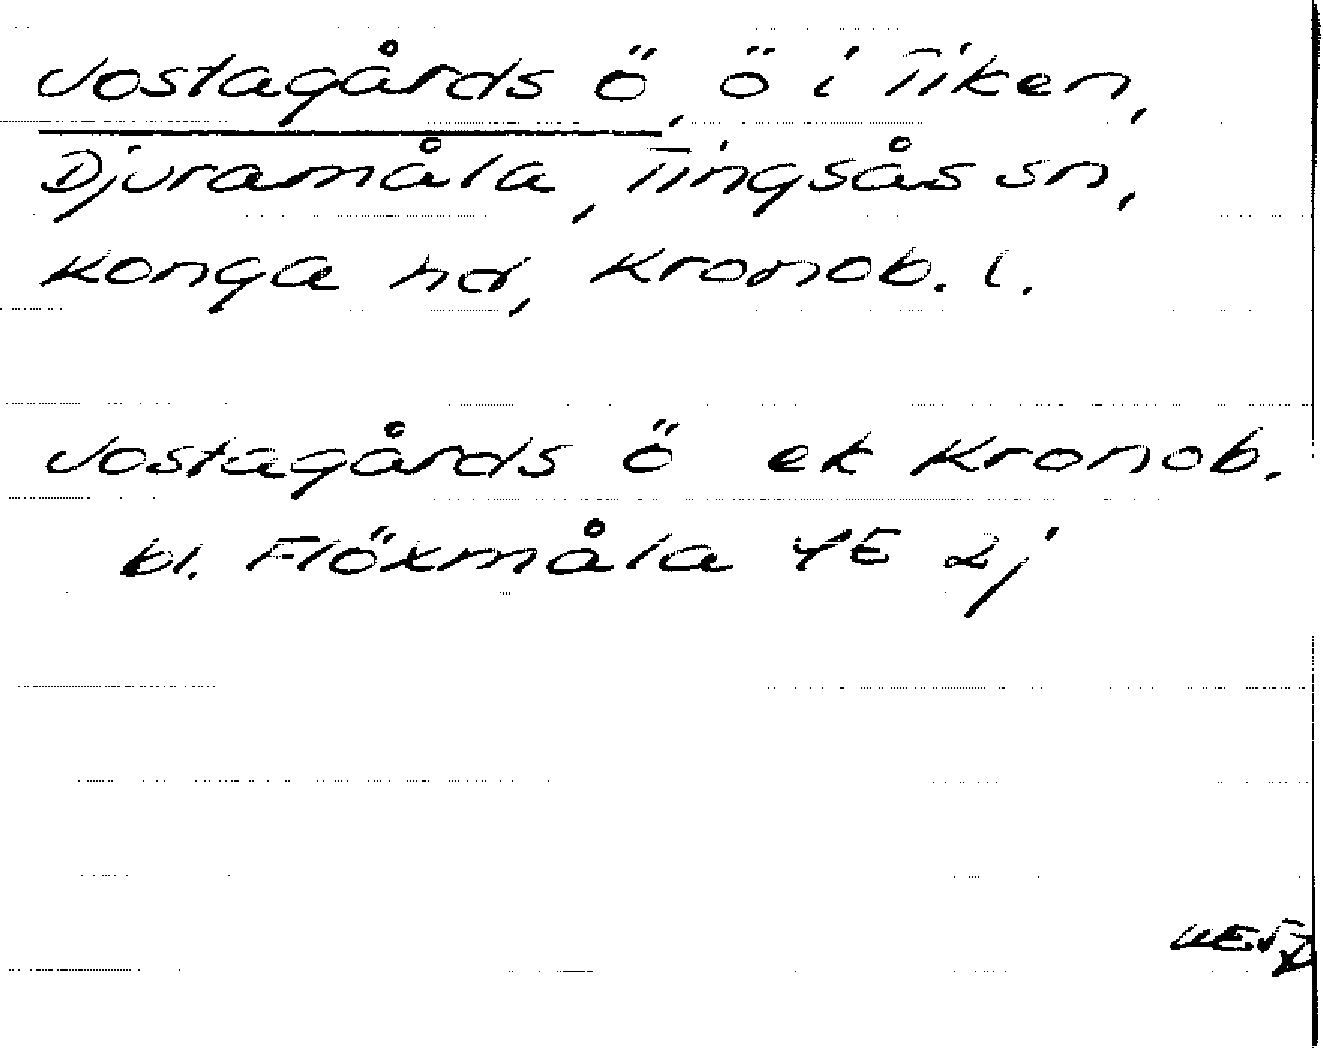 Jostagårds ö, ö i Tiken,
Djuramåla, Tingsås sn,
Konga hd, Kronob. l.
Jostagårds ö ek Kronob.
bl. Flöxmåla 4E 2j